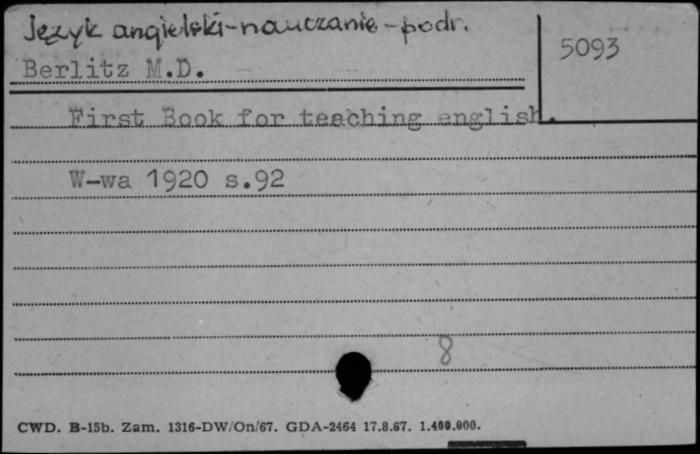 Język angielski-nauczanie-podr.
5093
Berlitz M.D.
First Book for teaching english.
W-wa 1920 s.92
8
CWD. B-15b. Zam. 1316-DW/On/67. GDA-2464 17.8.67. 1.400.000.